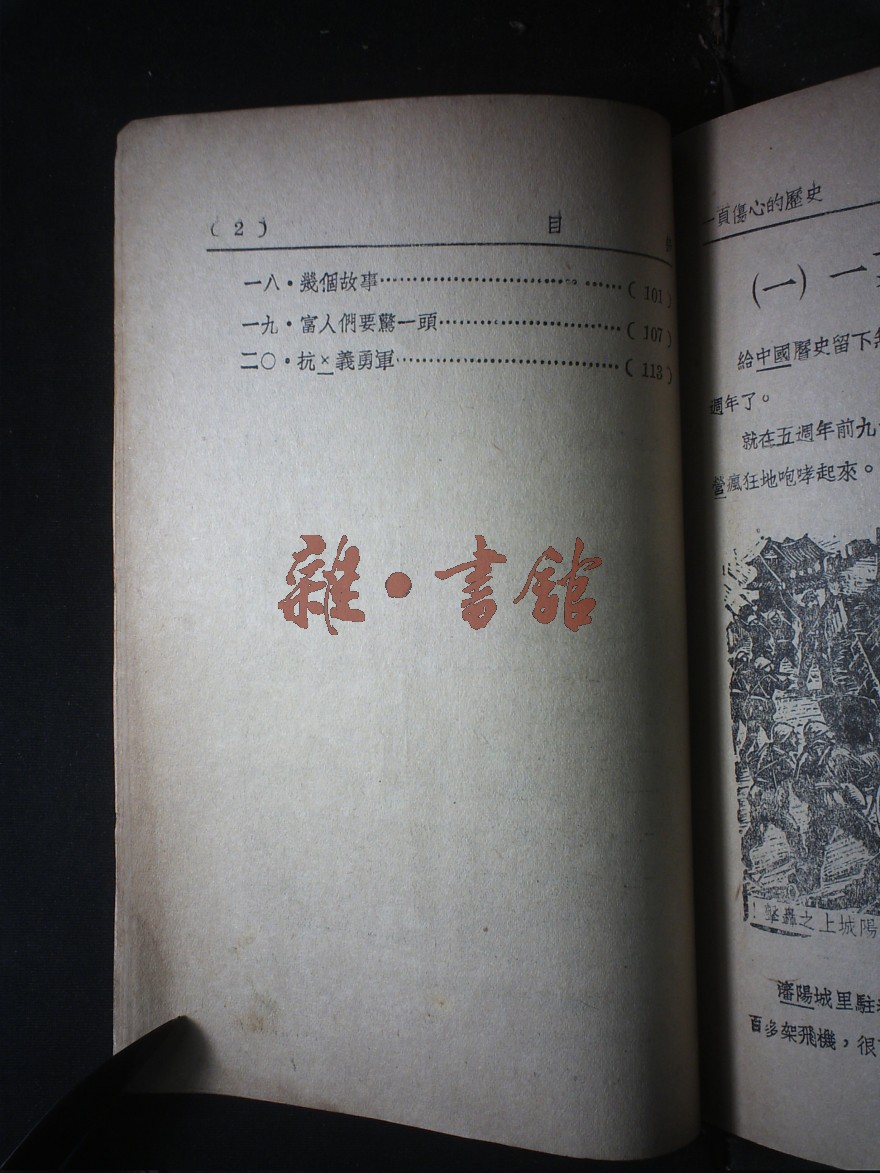 ( 2 ) 目
一八·幾個故事………………………( 101 )
一九·富人們要驚一頭………………………( 107 )
二〇·抗×義勇軍………………………( 113 )
雜·書館
一頁傷心的歷史
(一) 一
給中國曆史留下
週年了。
就在五週年前九
營瘋狂地咆哮起來。
陽城上之轟擊!
瀋陽城里駐
百多架飛機，很